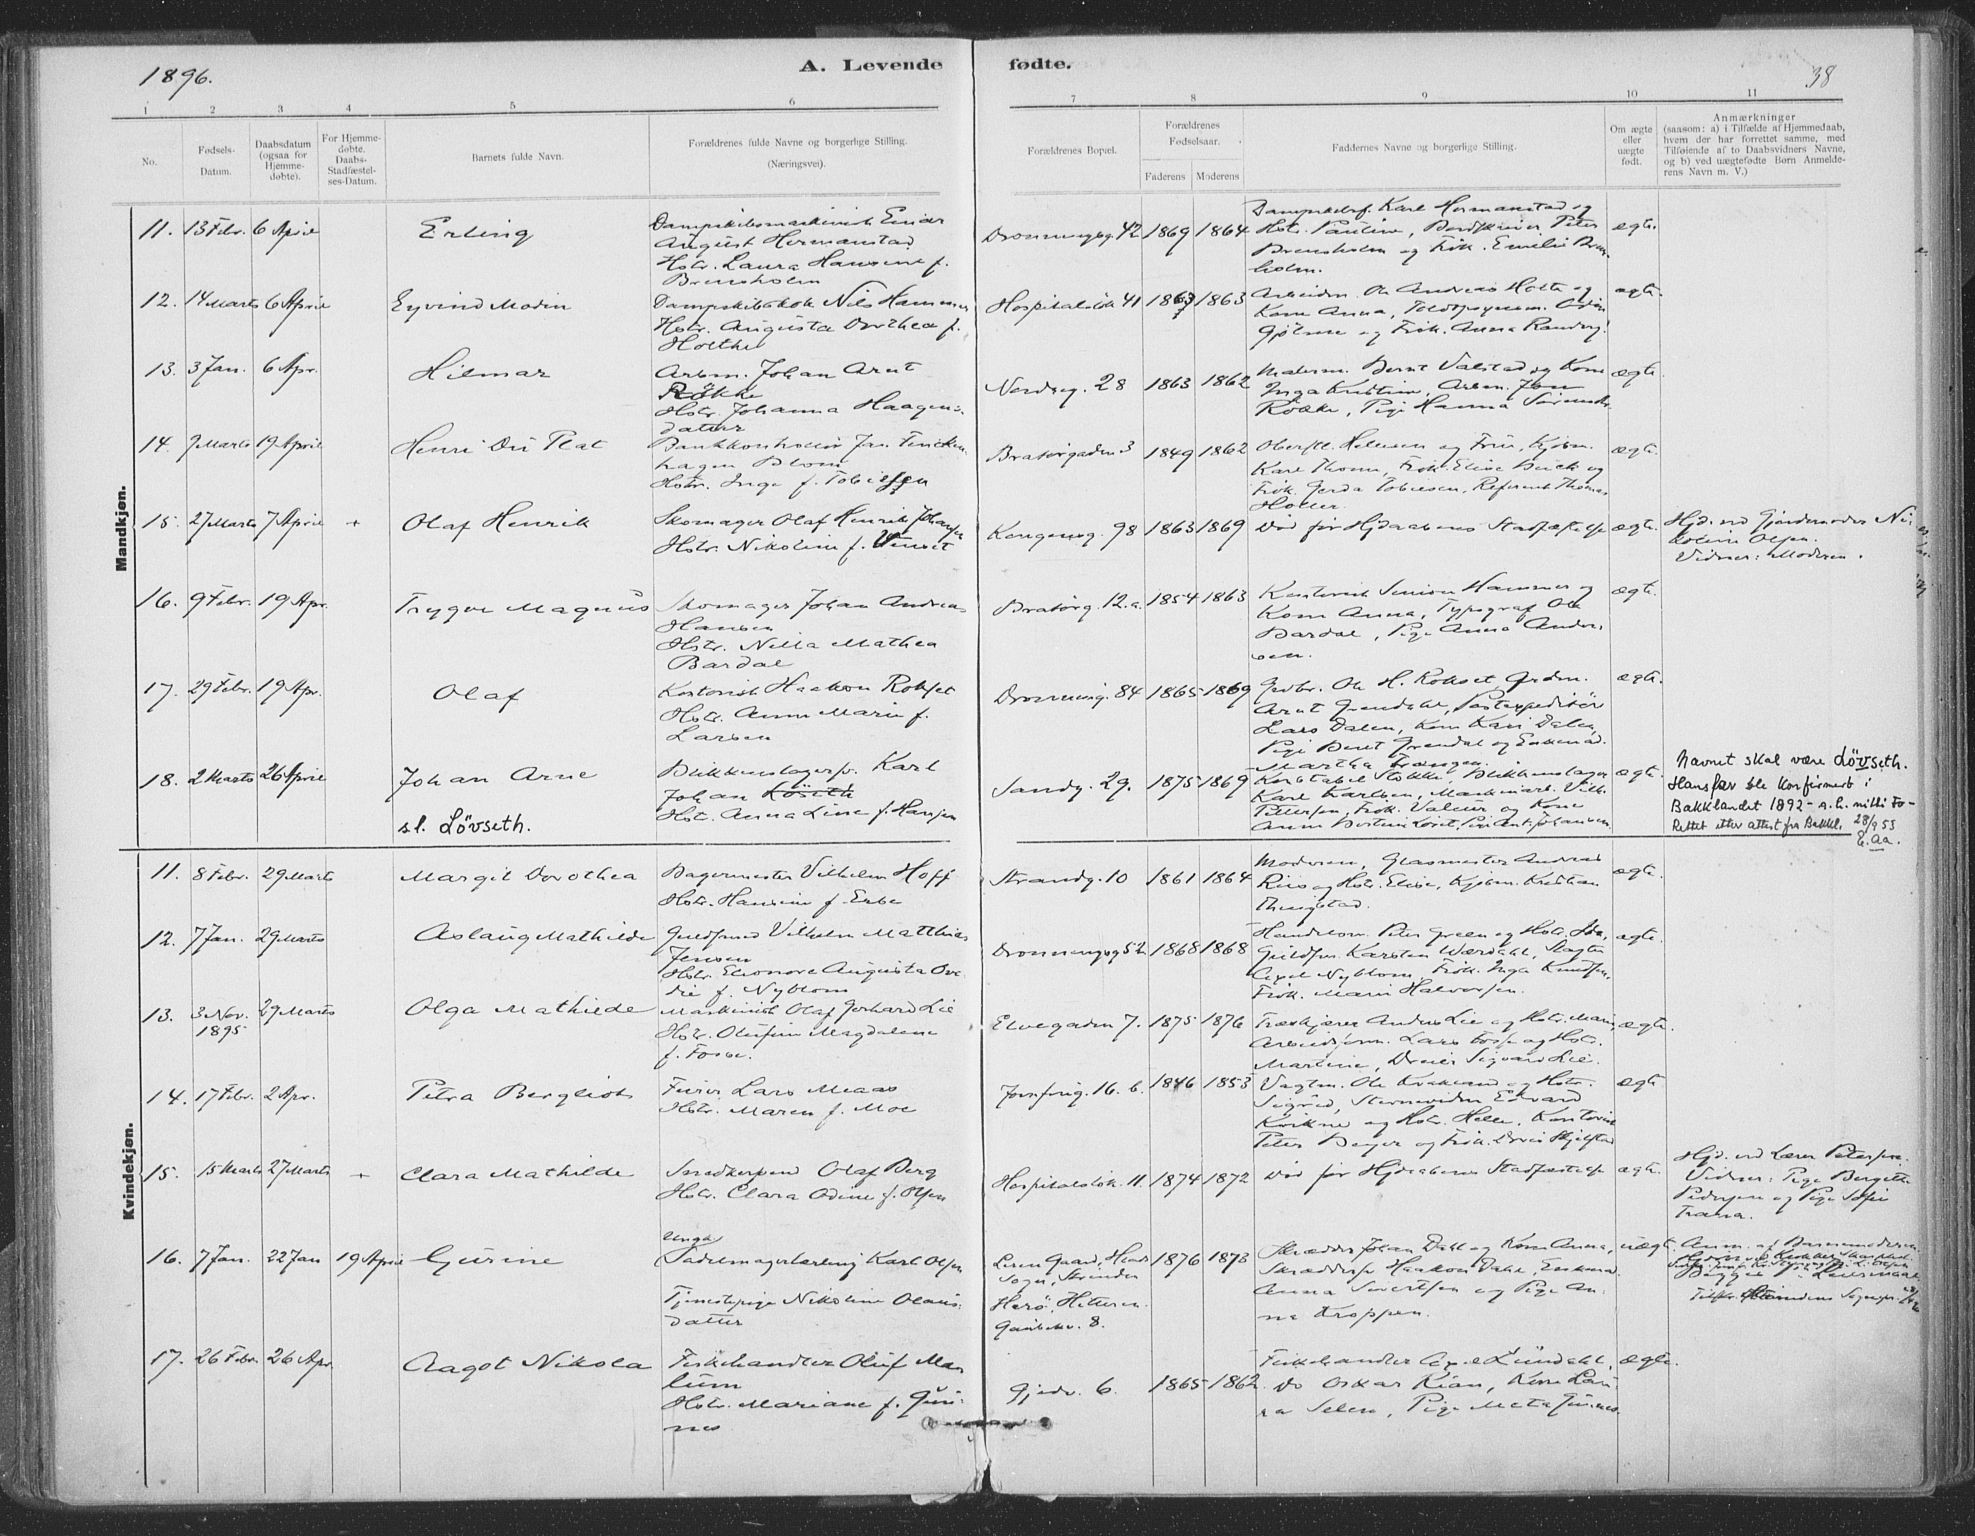 1896.
A. Levende fødte.
38
1 2 3 4 5 6 7 8 9 10 11
No.
Fødsels-
Datum.
Daabsdatum
(ogsaa for
Hjemme-
døbte).
For Hjemme-
døbte.
Daabs-
Stadfæstel-
ses-Datum.
Barnets fulde Navn.
Forældrenes fulde Navne og borgerlige Stilling.
(Næringsvei).
Forældrenes Bopæl.
Forældrenes
Fødselsaar.
Faderens Moderens
Faddernes Navne og borgerlige Stilling.
Om ægte
eller
uægte
født.
Anmærkninger
(saasom: a) i Tilfælde af Hjemmedaab,
hvem der har forrettet samme, med
Tilføiende af to Daabsvidners Navne,
og b) ved uægtefødte Børn Anmelde-
rens Navn m. V.)
Mandkjøn.
11. 13 Febr. 6 April
Erling
Dampskibsmaskinist Einar
August Hermanstad
Hstr. Laura Hansine f.
Brensholm
Dronningsg. 42 1869 1864
Dampskibsf. Karl Hermanstad og
Hstr. Pauline, Bordskriver Peter
Brensholm og Frk. Emelie Brens-
holm.
ægte.
12. 14 Marts 6 April
Eyvind Modin
Dampskibskok Nils Hammer
Hstr. Augusta Dorthea f.
Holthe
Hospitalsløk. 41 1863 1863
Arbeidm. Ole Andreas Holte og
Kone Anna, Toldopsynsm. Odin
Gjølme og Frk. Anna Randvig.
ægte.
13. 3 Jan. 6 Apr.
Hilmar
Arbm. Johan Arnt
Rökke
Hstr. Johanna Haagens-
datter
Nordreg. 28 1863 1862
Malerm. Bernt Valstad og Kone
Inga Kristine, Arbm. Jon
Rökke, Pige Hanna
ægte.
14. 7 Marts 19 April
Henri Du Plat
Bankkontrollør Jan Fincken-
hagen Blom
Hstr. Inga f. Tobiesen
Bratørgaden 3 1849 1862
Oberstl. Helgesen og Frue, Kjøbm.
Karl Thonn, Frk. Elise Buck og
Frk. Gerda Tobiesen, Referent Thomas
Holter.
ægte.
15. 27 Marts 7 April +
Olaf Henrik
Skomager Olaf Henrik Johansen
Hstr. Nikoline f.
Kongensg. 98 1863 1869
Død før Hjdaabens Stadfæstelse
ægte.
Hjd. ved Gjordemoder Ni-
koline Olsen.
Vidner: Moderen.
16. 9 Febr. 19 Apr.
Trygve Magnus
Skomager Johan Andreas
Hansen
Hstr. Nilla Mathea
Bardal
Bratørg. 12.a. 1854 1863
Kontorist Simon Hammer og
Kone Anna, Typograf Ole
Bardal, Pige Anna Ander-
sen.
ægte.
17. 29 Febr. 19 Apr.
Olaf
Kontorist Haakon Rokset
Hstr. Anne Marie f.
Larsen
Dronning. 84 1865 1869
Grdbr. Ole H. Rokset, Grdm.
Arnt Grendahl, Postexpeditør
Lars Dalen, Kone Kari Dalen,
Pige Beret Grendal og Enkemad.
Martha
ægte.
18. 2 Marts 26 April
Johan Arne
sl. Lövseth.
Blikkenslagersv. Karl
Johan Löseth
Hstr. Anna Line f. Hansen
Sandg. 29. 1875 1869
Konstabel Stokke, Blikkenslager
Karl Karlsen, Maskinarb. Vilh.
Pettersen, Frk. Valeur og Kone
Anne Bertine Löset, Pige Ant. Johansen
ægte.
Navnet skal være Lövseth.
Hans far ble konfirmert i
Bakklandet 1892 -
Rettet etter attest fra Bakkl. 28/9 53
E. Aa.
Kvindekjøn.
11. 8 Febr. 29 Marts
Margit Dorothea
Bagermester Vilhelm Hoff
Hstr. Hansine f. Erbe
Strandg. 10 1861 1864
Moderen, Glasmester Andreas
Riis og Hstr. Elise, Kjøbm. Kristian
Thingstad.
ægte.
12. 7 Jan. 29 Marts
Aslaug Mathilde
Guldsmed Vilhelm Matthias
Jensen
Hstr. Eleonore Augusta Ove-
die f. Nyblom
Dronningsg. 52 1868 1868
Handelsm. Peter Green og Hstr. Ida,
Guldsm. Karsten Wærdahl, Slagter
Axel Nyblom, Frk. Inga Knudsen,
Frk. Marie Halvorsen.
ægte.
13. 3 Nov.
1895
29 Marts
Olga Mathilde
Maskinist Olaf Gerhard Lie
Hstr. Olufine Magdalene
f. Fosse.
Elvegaden 7. 1875 1876
Træskjærer Anders Lie og Hstr. Marie,
Arbeidsform. Lars Fosse og Hstr.
Martine, Dreier Sigvard Lie.
ægte.
14. 17 Febr. 2 Apr.
Petra Bergliot
Furer Lars Maas
Hstr. Maren f. Moe
Jomfrug. 16. b. 1846 1853
Vagtm. Ole Kvakland og Hstr.
Sigrid, Edvard
Kvikne og Hstr. Helle, Kontorist
Peter Berger og Frk. Doris Skjelstad
ægte
15. 15 Marts 27 Marts +
Clara Mathilde
Snedkersvend Olaf Berg
Hstr. Clara Odine f. Olsen
Hospitalsløk. 11. 1874 1872
Død før Hjdaabens Stadfæstelse
ægte.
Hjd. ved Lærer Petersen.
Vidner: Pige Bergitte
Pedersen og Pige Sofie
Trana.
16. 7 Jan. 22 Jan 19 April
Gurine
Ungk.
Sadelmagerlærling Karl Olsen
Tjenestepige Nikoline Olaus-
datter
Leren Gaard,
Sogn, Strinden
Herö, Hitteren
Gaubekv. 8.
1876 1873
Skrædder Johan Dahl og Kone Anna,
Skræddersv. Haakon Dahl, Enkemad.
Anna Sivertsen og Pige An-
na Kroppen.
uægt.
Anm. af Barnemoderen
17. 26 Febr. 26 Apr.
Aagot Nikola
Fiskehandler Oluf Mas-
lum
Hstr. Mariane f. Guri-
nes
Gjedv. 6. 1865 1862
Fiskehandler Axel Lundahl,
Do Oskar Kian, Kone Lau-
ra Selen, Pige Meta Gurines.
ægte.